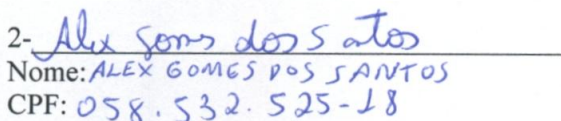 2- Alex Gomes dos Santos
Nome: ALEX GOMES DOS SANTOS
CPF: 058.532.525-18